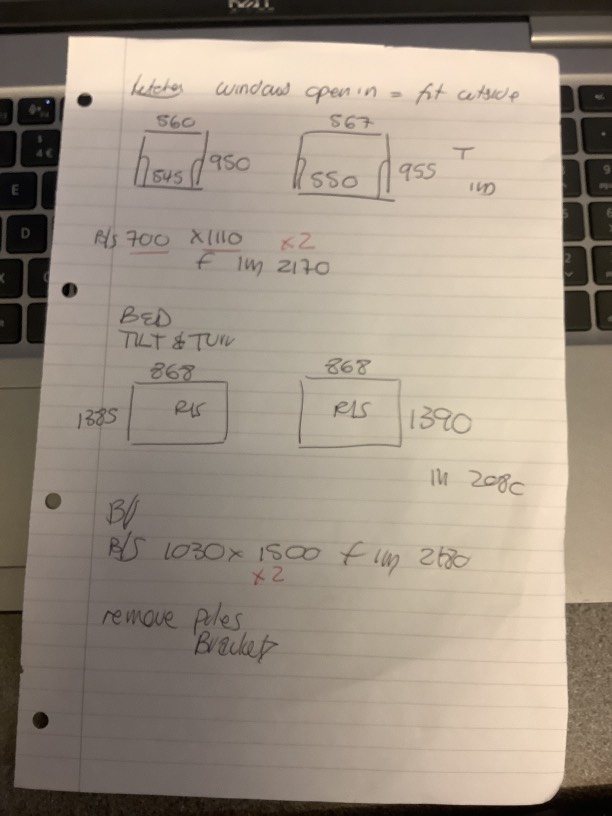 kitchen windows open in = fit outside
560 567
545 950 550 955 T
IND
R/S 700 x1110 x2
f im 2170
BED
TILT & TURN
868 868
1385 R/S R/S 1390
im 208c
B/
R/S 1030 x 1500 f im
x2
remove Poles
Bracket